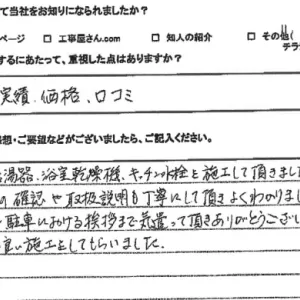 て当社をお知りになられましたか？
ページ □ 工事屋さん.com □ 知人の紹介 □ その他（
チラ
するにあたって、重視した点はありますか？
実績、価格、口コミ
想・ご要望などがございましたら、ご記入ください。
湯器、浴室乾燥機、キッチン水栓を施工して頂きました
の確認や取扱説明も丁寧にして頂きよくわかりまし
駐車における挨拶まで気遣って頂きありがとうござい
良い施工をしてもらいました。